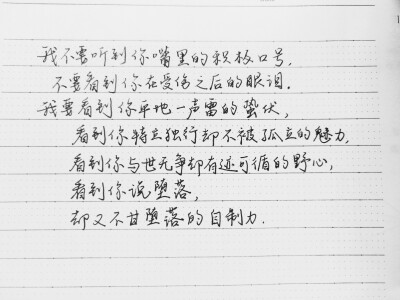 我不要听到你嘴里的积极口号,
不要看到你在受伤之后的眼泪.
我要看到你平地一声雷的蛰伏,
看到你特立独行却不被孤立的魅力,
看到你与世无争却有迹可循的野心,
看到你说堕落,
却又不甘堕落的自制力.